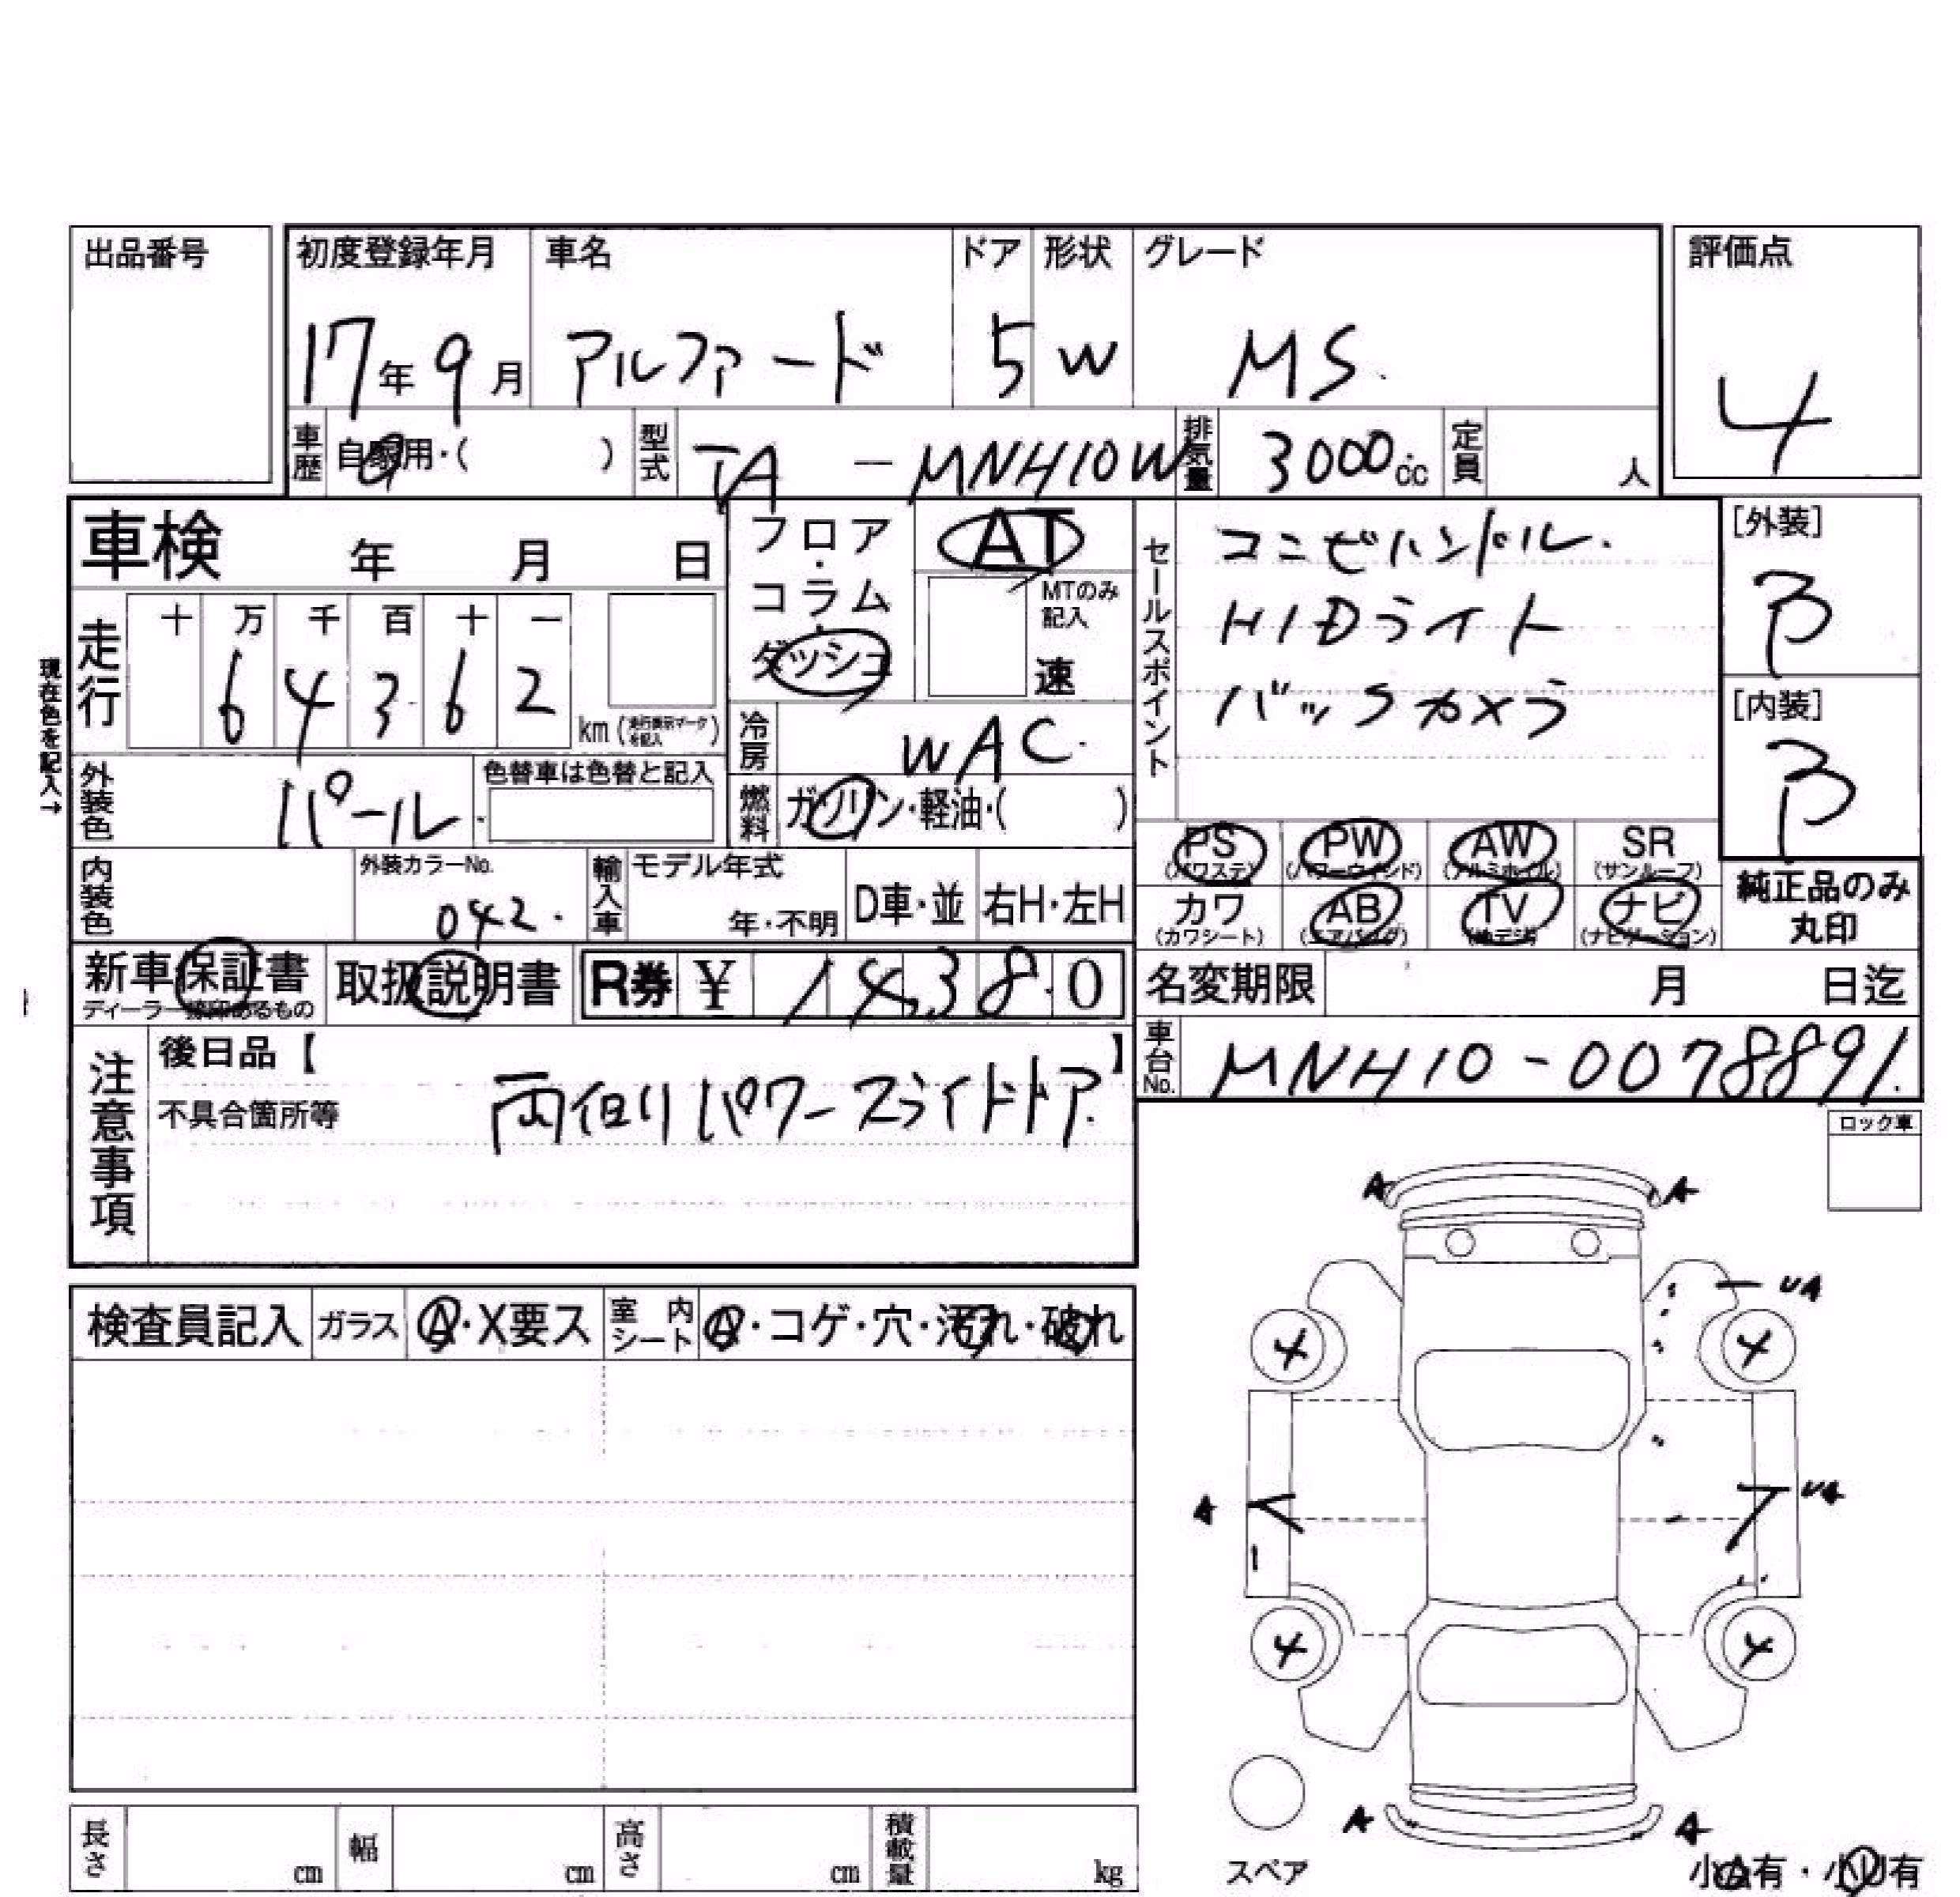 出品番号
初度登録年月 車名 ドア 形状 グレード 評価点
17年9月 アルファード 5 W MS. 4
車歴 自家用・( ) 型式 TA - MNH10W 排気量 3000cc 定員 人
車検 年 月 日
フロア・コラム・ダッシュ
AT
MTのみ記入
速
セールスポイント
コンビハンドル.
HIDライト
バックカメラ
[外装]
B
[内装]
B
現在色を記入→
走行 十 万 千 百 十 一
6 4 3 6 2 km (走行表示マークを記入)
冷房 WAC.
外装色 パール. 色替車は色替と記入
燃料 ガソリン・軽油・( )
PS (パワステ) PW (パワーウインド) AW (アルミホイル) SR (サンルーフ)
カワ (カワシート) AB (エアバッグ) TV (地デジ) ナビ (ナビゲーション)
純正品のみ丸印
内装色 外装カラーNo. 042. 輸入車 モデル年式 年・不明 D車・並 右H・左H
新車保証書 取扱説明書 R券 ¥ 14,380
名変期限 月 日迄
車台No. MNH10-0078891.
注意事項
後日品【 】
不具合箇所等
両側パワースライドドア.
ロック車
A A
UA
4 4
A UA
4 4
A A
検査員記入 ガラス A・X要ス 室内シート A・コゲ・穴・汚れ・破れ
長さ cm 幅 cm 高さ cm 積載量 kg
スペア
小A有・小U有